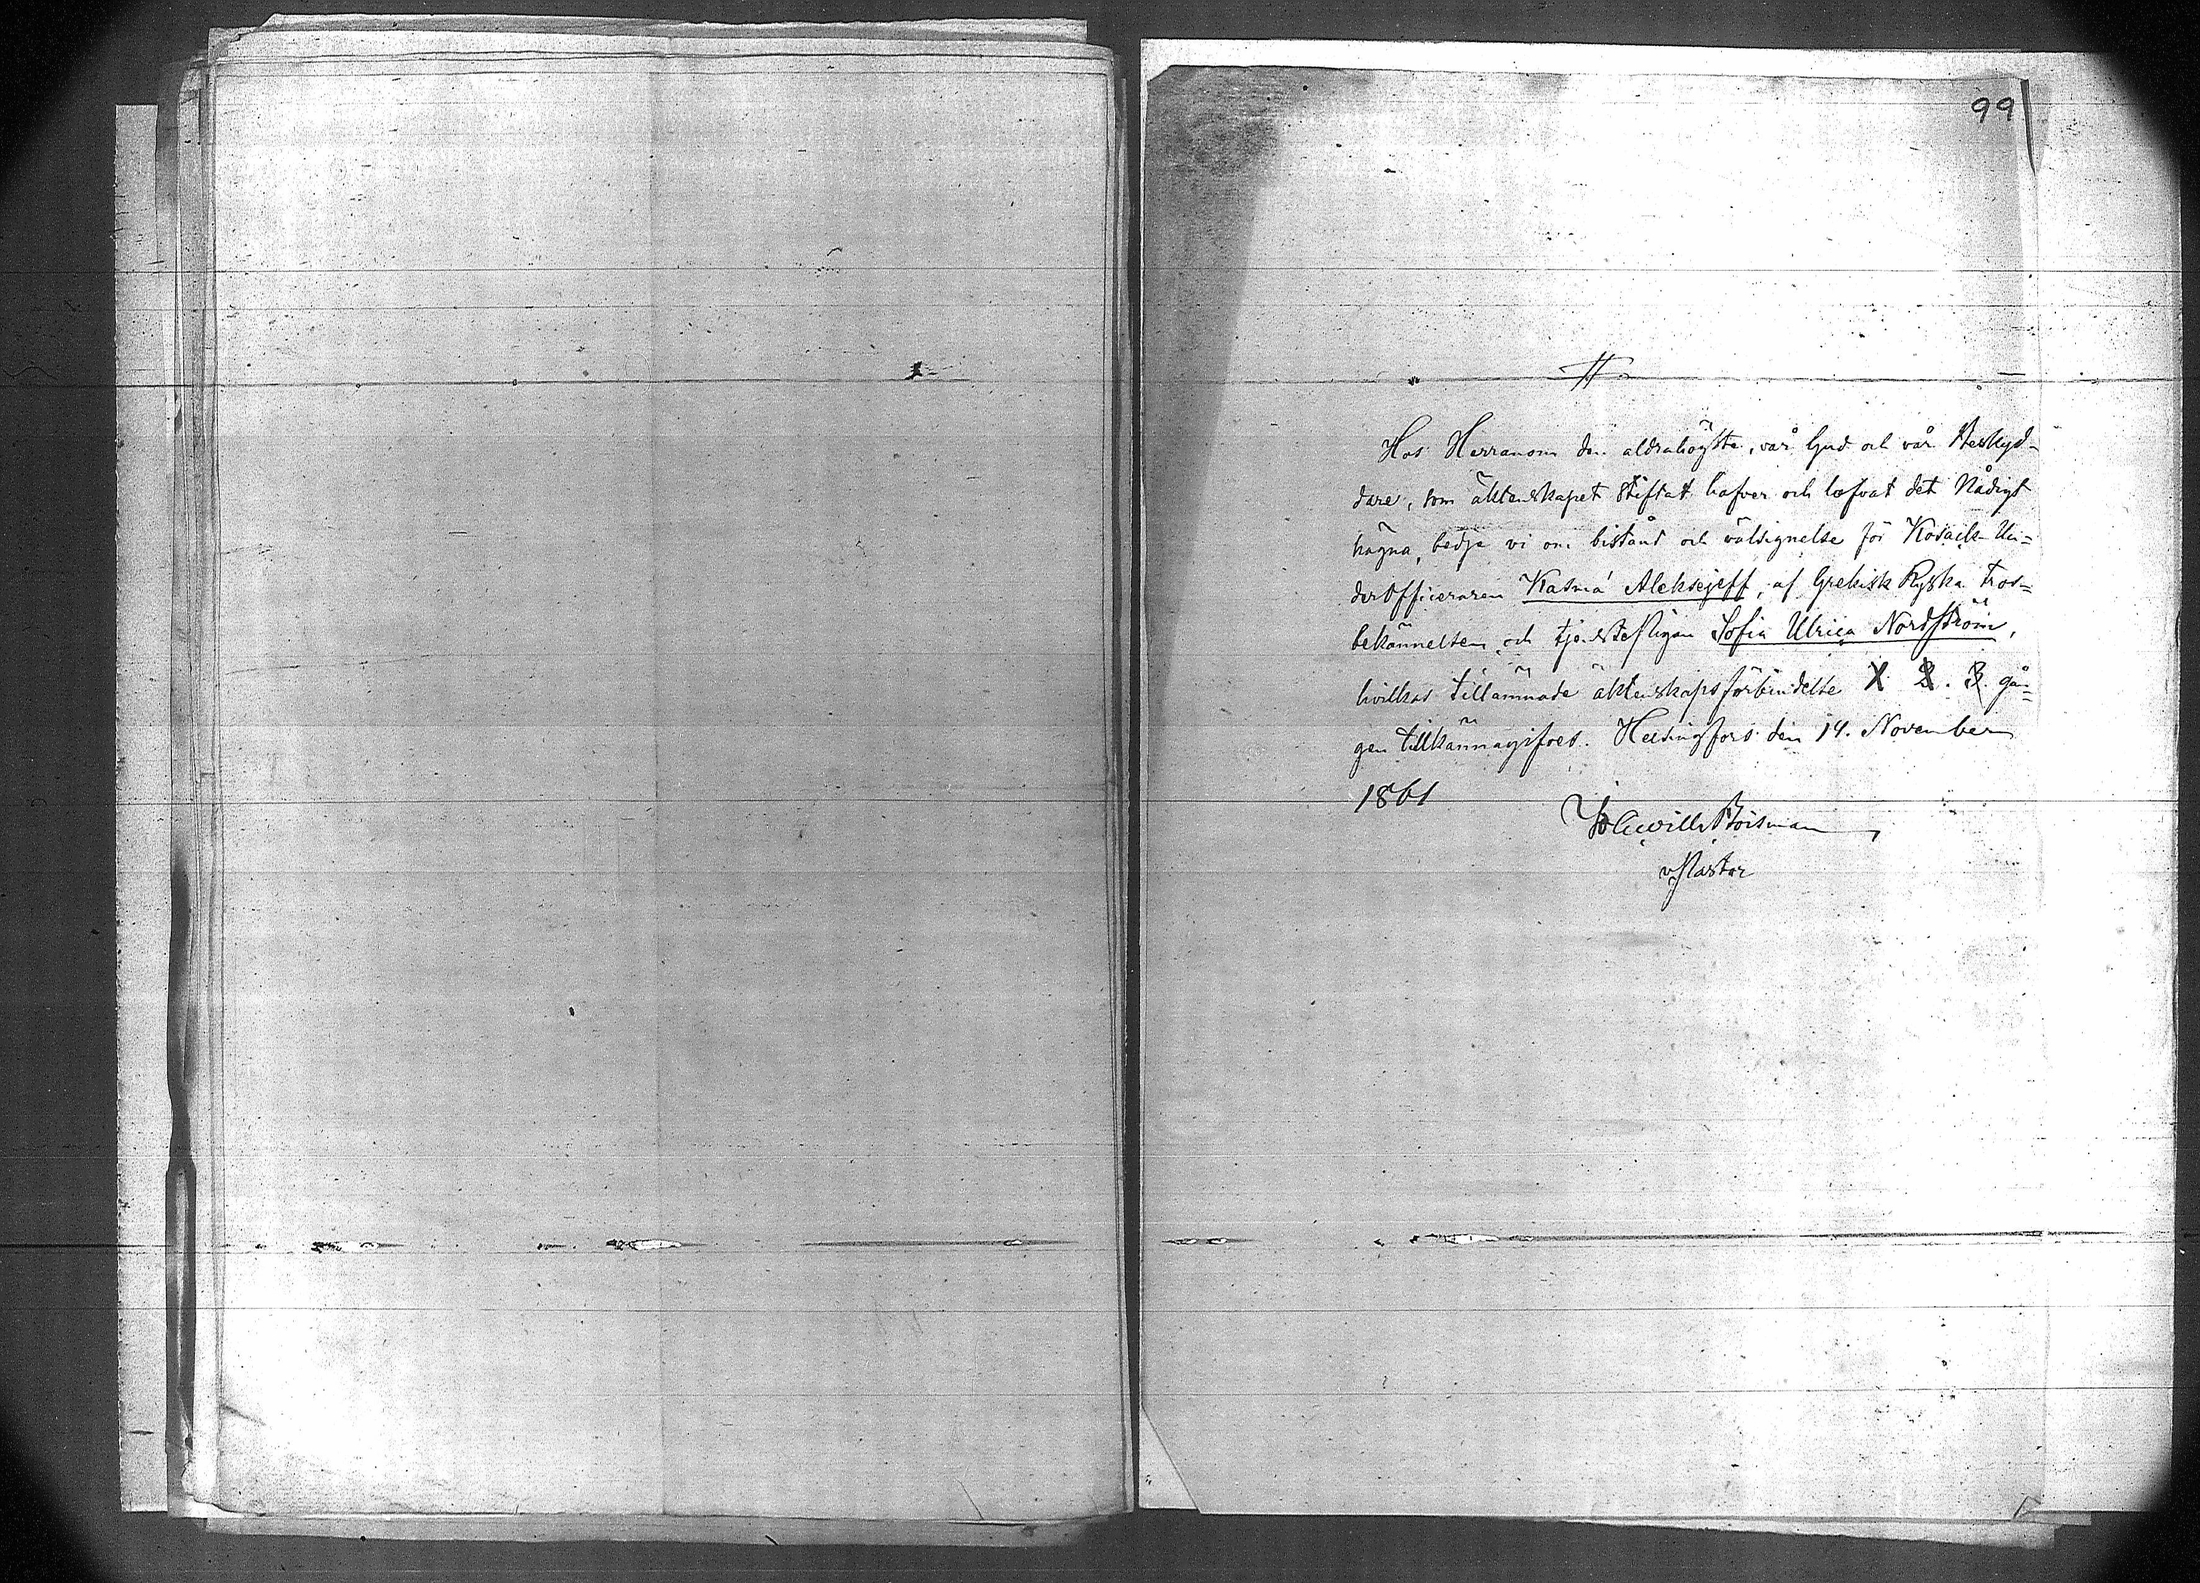 99
Hos Herranom den aldrahögste, vår Gud och vår Beskyd-
dare, som äktenskapet stiftat hafver och lofvat det Nådigt
hägna, bedje vi om bistånd och välsignelse för Kosack Un=
derofficeraren Kasmá Aleksejeff, af Grekisk Ryska tros=
bekännelsen och tjenstepigan Sofia Ulrica Nordström,
hvilkas tillämnade äktenskapsförbindelse 1. 2. 3. gån=
gen tillkännagifves. Helsingfors den 14. November
1861
Boisman
v Pastor